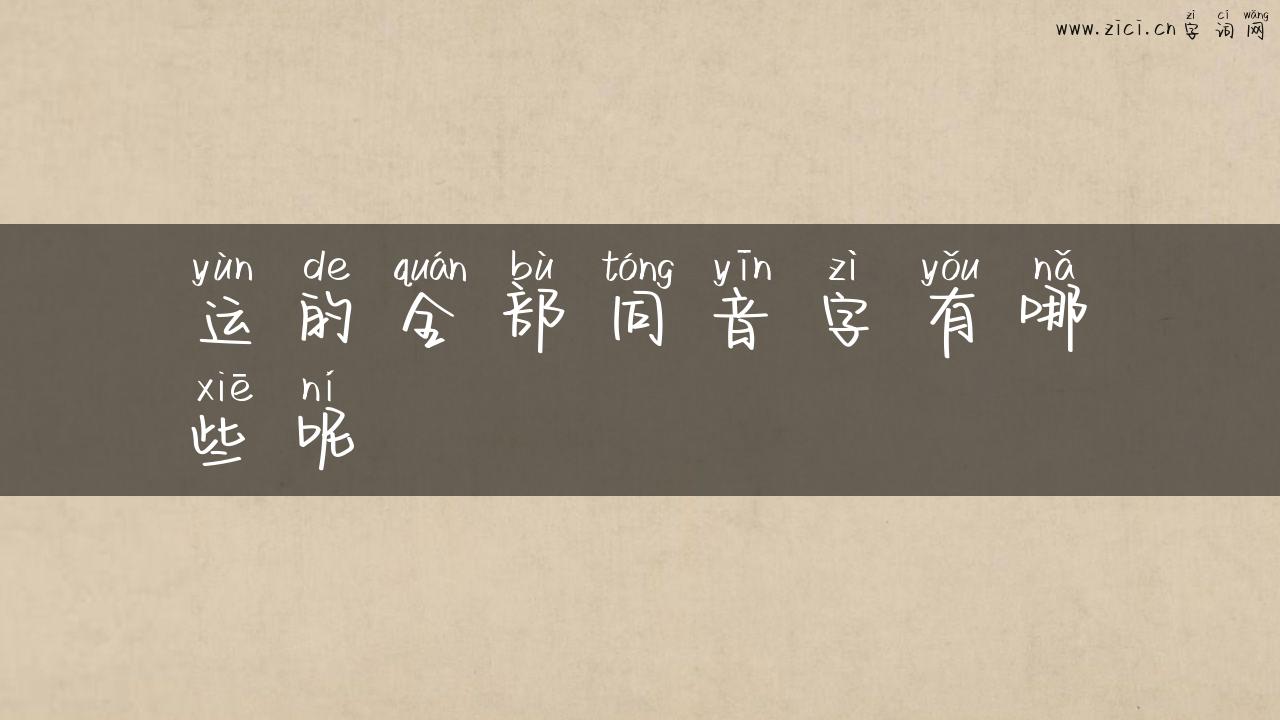 zì cí wǎng
www.zici.cn 字词网
yùn de quán bù tóng yīn zì yǒu nǎ
运的全部同音字有哪
xiē ní
些呢